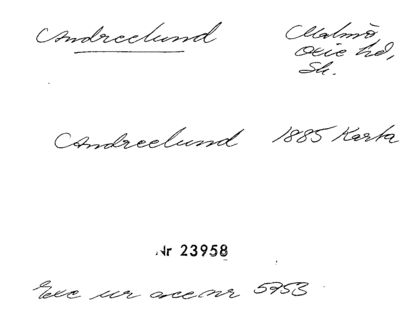 Andreelund
Malmö,
Oxie hd,
Sk.
Andreelund 1885 Karta
Nr 23958
Exc ur acc nr 5953